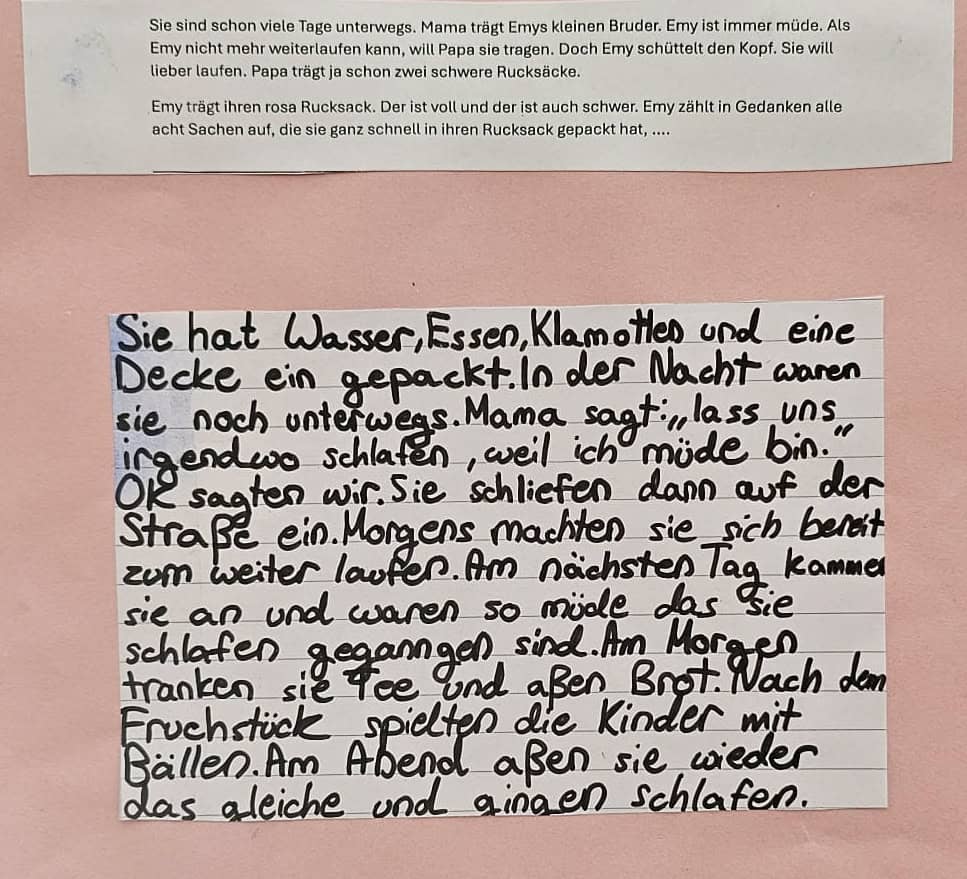 Sie sind schon viele Tage unterwegs. Mama trägt Emys kleinen Bruder. Emy ist immer müde. Als
Emy nicht mehr weiterlaufen kann, will Papa sie tragen. Doch Emy schüttelt den Kopf. Sie will
lieber laufen. Papa trägt ja schon zwei schwere Rucksäcke.
Emy trägt ihren rosa Rucksack. Der ist voll und der ist auch schwer. Emy zählt in Gedanken alle
acht Sachen auf, die sie ganz schnell in ihren Rucksack gepackt hat, ....
Sie hat Wasser, Essen, Klamotten und eine
Decke ein gepackt. In der Nacht waren
sie noch unterwegs. Mama sagt: „lass uns
irgendwo schlafen, weil ich müde bin.“
OK sagten wir. Sie schliefen dann auf der
Straße ein. Morgens machten sie sich bereit
zum weiter laufen. Am nächsten Tag kammen
sie an und waren so müde das sie
schlafen geganngen sind. Am Morgen
tranken sie Tee und aßen Brot. Nach dem
Fruchstück spielten die Kinder mit
Bällen. Am Abend aßen sie wieder
das gleiche und gingen schlafen.